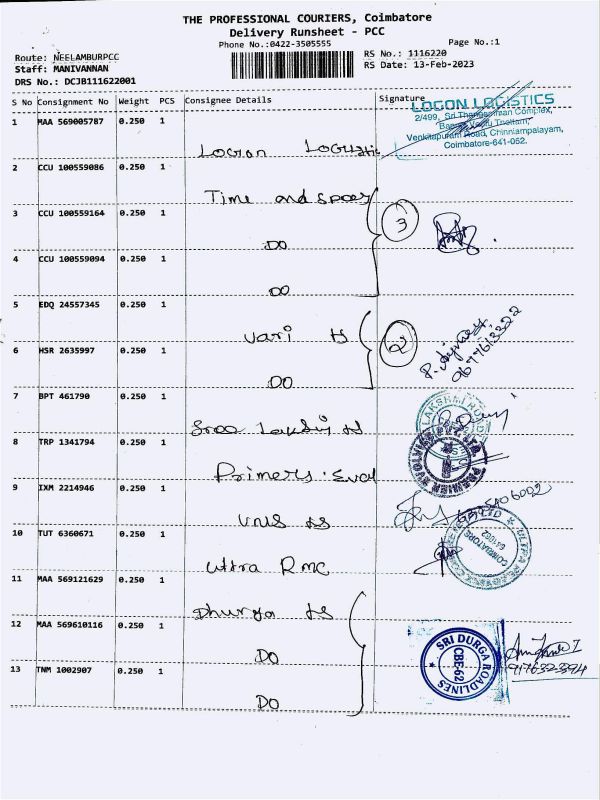 THE PROFESSIONAL COURIERS, Coimbatore
Delivery Runsheet - PCC
Phone No.:0422-3505555
Page No.:1
Route: NEELAMBURPCC
RS No.: 1116220
Staff: MANIVANNAN
RS Date: 13-Feb-2023
DRS No.: DCJB111622001
S No Consignment No Weight PCS Consignee Details Signature
LOGON LOGISTICS
2/499, Sri Thangamman Complex,
Venkitapuram Road, Chinniampalayam,
Coimbatore-641-062.
1 MAA 569005787 0.250 1
Logon Logistic
2 CCU 100559086 0.250 1
Time and space
3 CCU 100559164 0.250 1
3
DO
4 CCU 100559094 0.250 1
DO
5 EDQ 24557345 0.250 1
Vari ts
6 HSR 2635997 0.250 1
2
DO
7 BPT 461790 0.250 1
Sree
8 TRP 1341794 0.250 1
9 IXM 2214946 0.250 1
10 TUT 6360671 0.250 1
Ultra RMC
COIMBATORE
641062
11 MAA 569121629 0.250 1
Dhurga ts
12 MAA 569610116 0.250 1
DO
SRI DURGA ROADLINES
CBE-62
13 TNM 1002907 0.250 1
DO